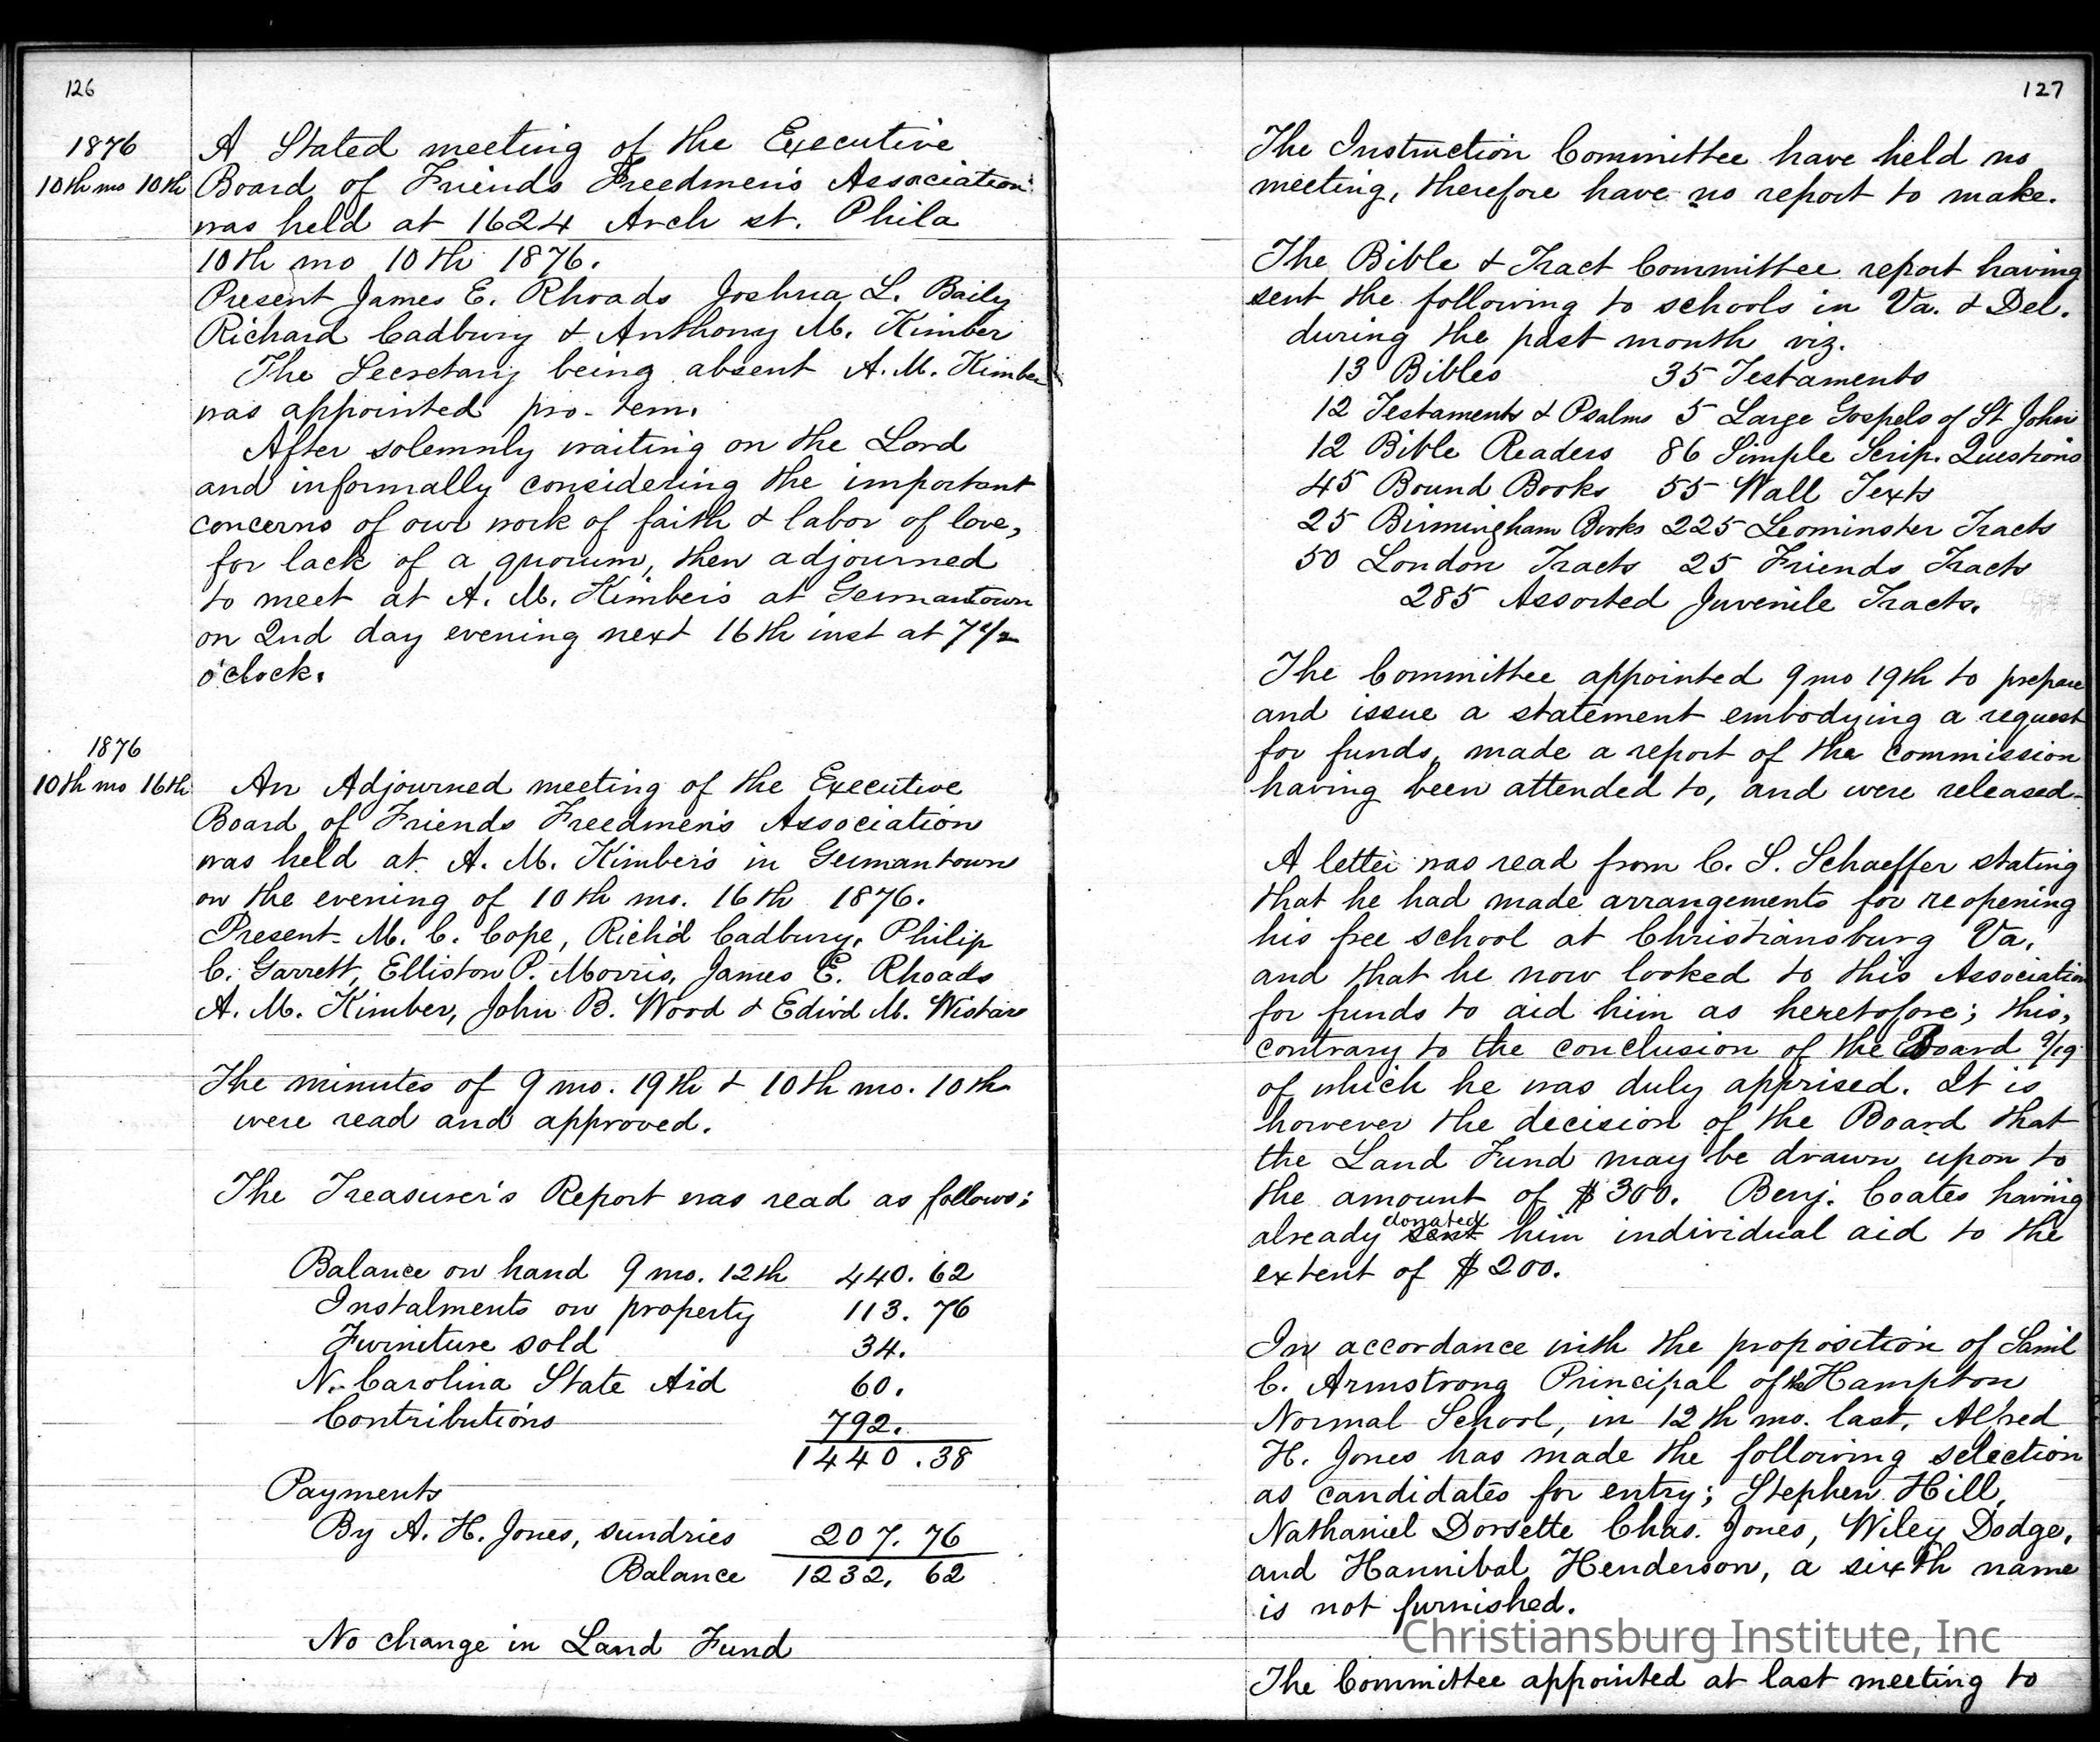 126
1876
10th mo 10th
A Stated meeting of the Executive
Board of Friends Freedmen's Association
was held at 1624 Arch st. Phila
10th mo 10th 1876.
Present James E. Rhoads Joshua L. Baily
Richard Cadbury & Anthony M. Kimber
The Secretary being absent A. M. Kimber
was appointed pro-tem.
After solemnly waiting on the Lord
and informally considering the important
concerns of our work of faith & labor of love,
for lack of a quorum, then adjourned
to meet at A. M. Kimber's at Germantown
on 2nd day evening next 16th inst at 7 1/2
o'clock.
1876
10th mo 16th
An Adjourned meeting of the Executive
Board of Friends Freedmen's Association
was held at A. M. Kimber's in Germantown
on the evening of 10th mo. 16th 1876.
Present- M. C. Cope, Rich'd Cadbury, Philip
C. Garrett, Elliston P. Morris, James E. Rhoads
A. M. Kimber, John B. Wood & Edw'd M. Wistar
The minutes of 9 mo. 19th & 10th mo. 10th
were read and approved.
The Treasurer's Report was read as follows:
Balance on hand 9 mo. 12th 440.62
Instalments on property 113.76
Furniture sold 34.
N. Carolina State Aid 60.
Contributions 792.
1440.38
Payments
By A. H. Jones, sundries 207.76
Balance 1232.62
No change in Land Fund
127
The Instruction Committee have held no
meeting, therefore have no report to make.
The Bible & Tract Committee report having
sent the following to schools in Va. & Del.
during the past month viz.
13 Bibles 35 Testaments
12 Testaments & Psalms 5 Large Gospels of St John
12 Bible Readers 86 Simple Scrip. Questions
45 Bound Books 55 Wall Texts
25 Birmingham Books 225 Leominster Tracts
50 London Tracts 25 Friends Tracts
285 Assorted Juvenile Tracts.
The Committee appointed 9 mo 19th to prepare
and issue a statement embodying a request
for funds, made a report of the commission
having been attended to, and were released.
A letter was read from C. S. Schaeffer stating
that he had made arrangements for reopening
his free school at Christiansburg Va.
and that he now looked to this Association
for funds to aid him as heretofore; this,
contrary to the conclusion of the Board 9/19
of which he was duly apprised. It is
however the decision of the Board that
the Land Fund may be drawn upon to
the amount of $300. Benj. Coates having
already donated sent him individual aid to the
extent of $200.
In accordance with the proposition of Saml
C. Armstrong Principal of the Hampton
Normal School, in 12th mo. last, Alfred
H. Jones has made the following selection
as candidates for entry; Stephen Hill,
Nathaniel Dorsette Chas. Jones, Wiley Dodge,
and Hannibal Henderson, a sixth name
is not furnished.
Christiansburg Institute, Inc
The Committee appointed at last meeting to